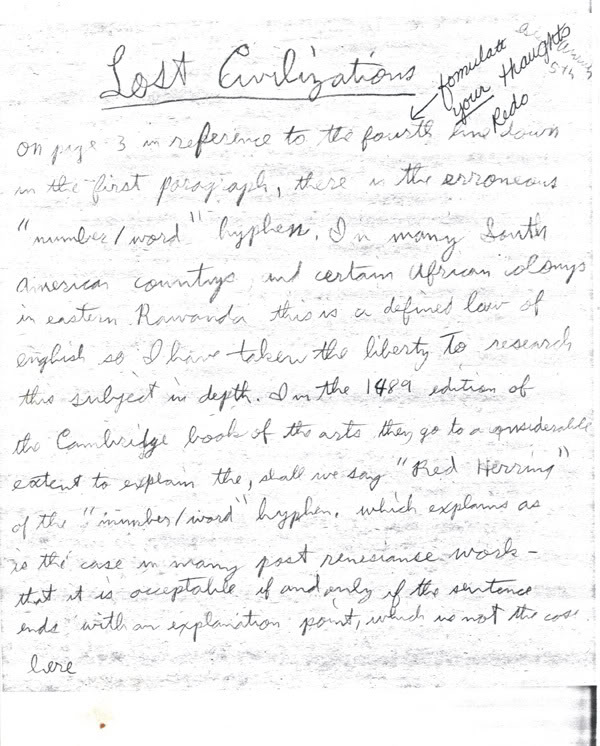 Lost Civilizations
← fomulate
your thoughts
Redo
5th
on page 3 in reference to the fourth line down
in the first paragraph, there is the erroneous
"number/word" hyphen. In many South
american countrys, and certain African colonys
in eastern Rawanda this is a defined law of
english so I have taken the liberty To research
this subject in depth. In the 1489 edition of
the Cambridge book of the arts they go to a considerable
extent to explain the, shall we say "Red Herring"
of the "number/word" hyphen. which explains as
is the case in many post renesiance work -
that it is acceptable if and only if the sentence
ends with an explanation point, which is not the case
here